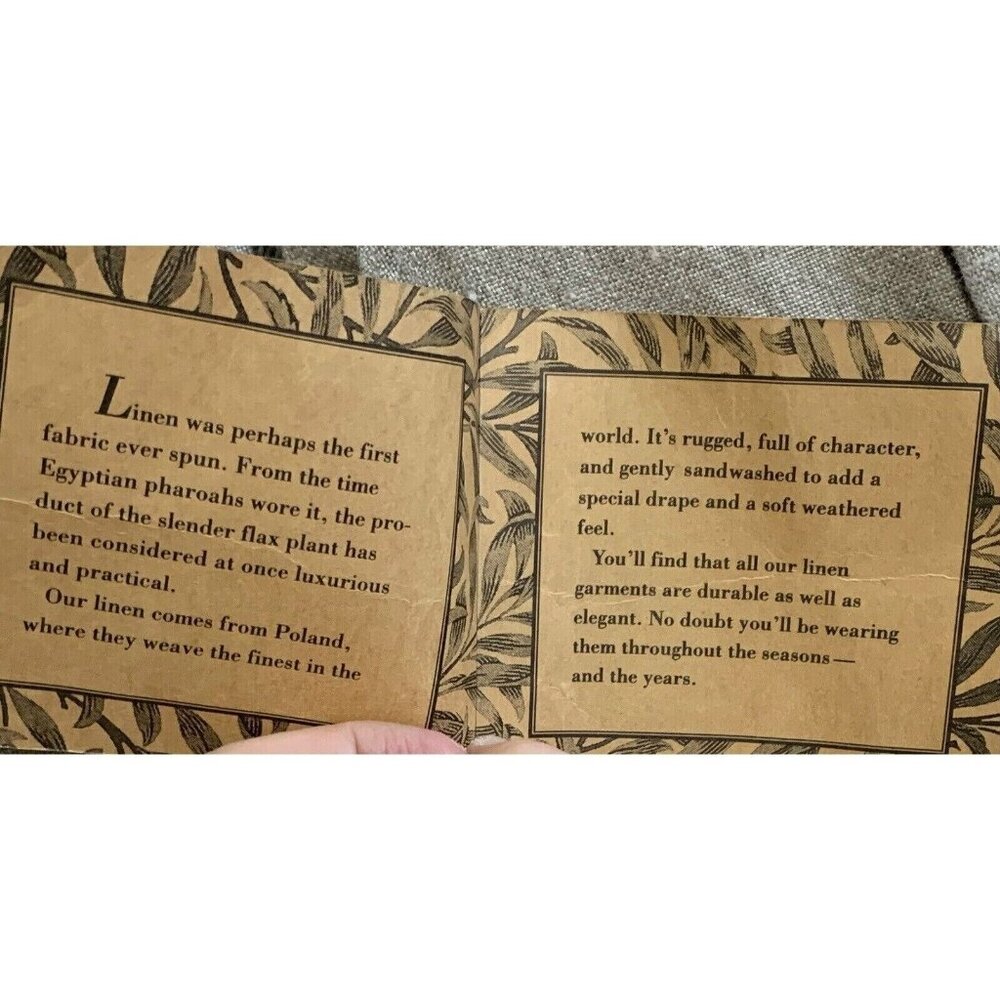 Linen was perhaps the first
fabric ever spun. From the time
Egyptian pharoahs wore it, the pro-
duct of the slender flax plant has
been considered at once luxurious
and practical.
Our linen comes from Poland,
where they weave the finest in the
world. It's rugged, full of character,
and gently sandwashed to add a
special drape and a soft weathered
feel.
You'll find that all our linen
garments are durable as well as
elegant. No doubt you'll be wearing
them throughout the seasons—
and the years.